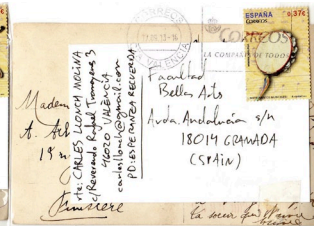 CORREOS
VALENCIA
CORREOS
LA COMPAÑIA DE TODOS
ESPAÑA
0,37€
rte: CARLES LLONCH MOLINA
c/Reverendo Rafael Tramoyeres 3
46020 VALENCIA
carlosllonch@gmail.com
PD: ESPERANZA RECUERDA
Facultad
Bellas Arts
Avda. Andalucía s/n
18014 GRANADA
(SPAIN)
Madem
A.
Finistere
la soeur qui